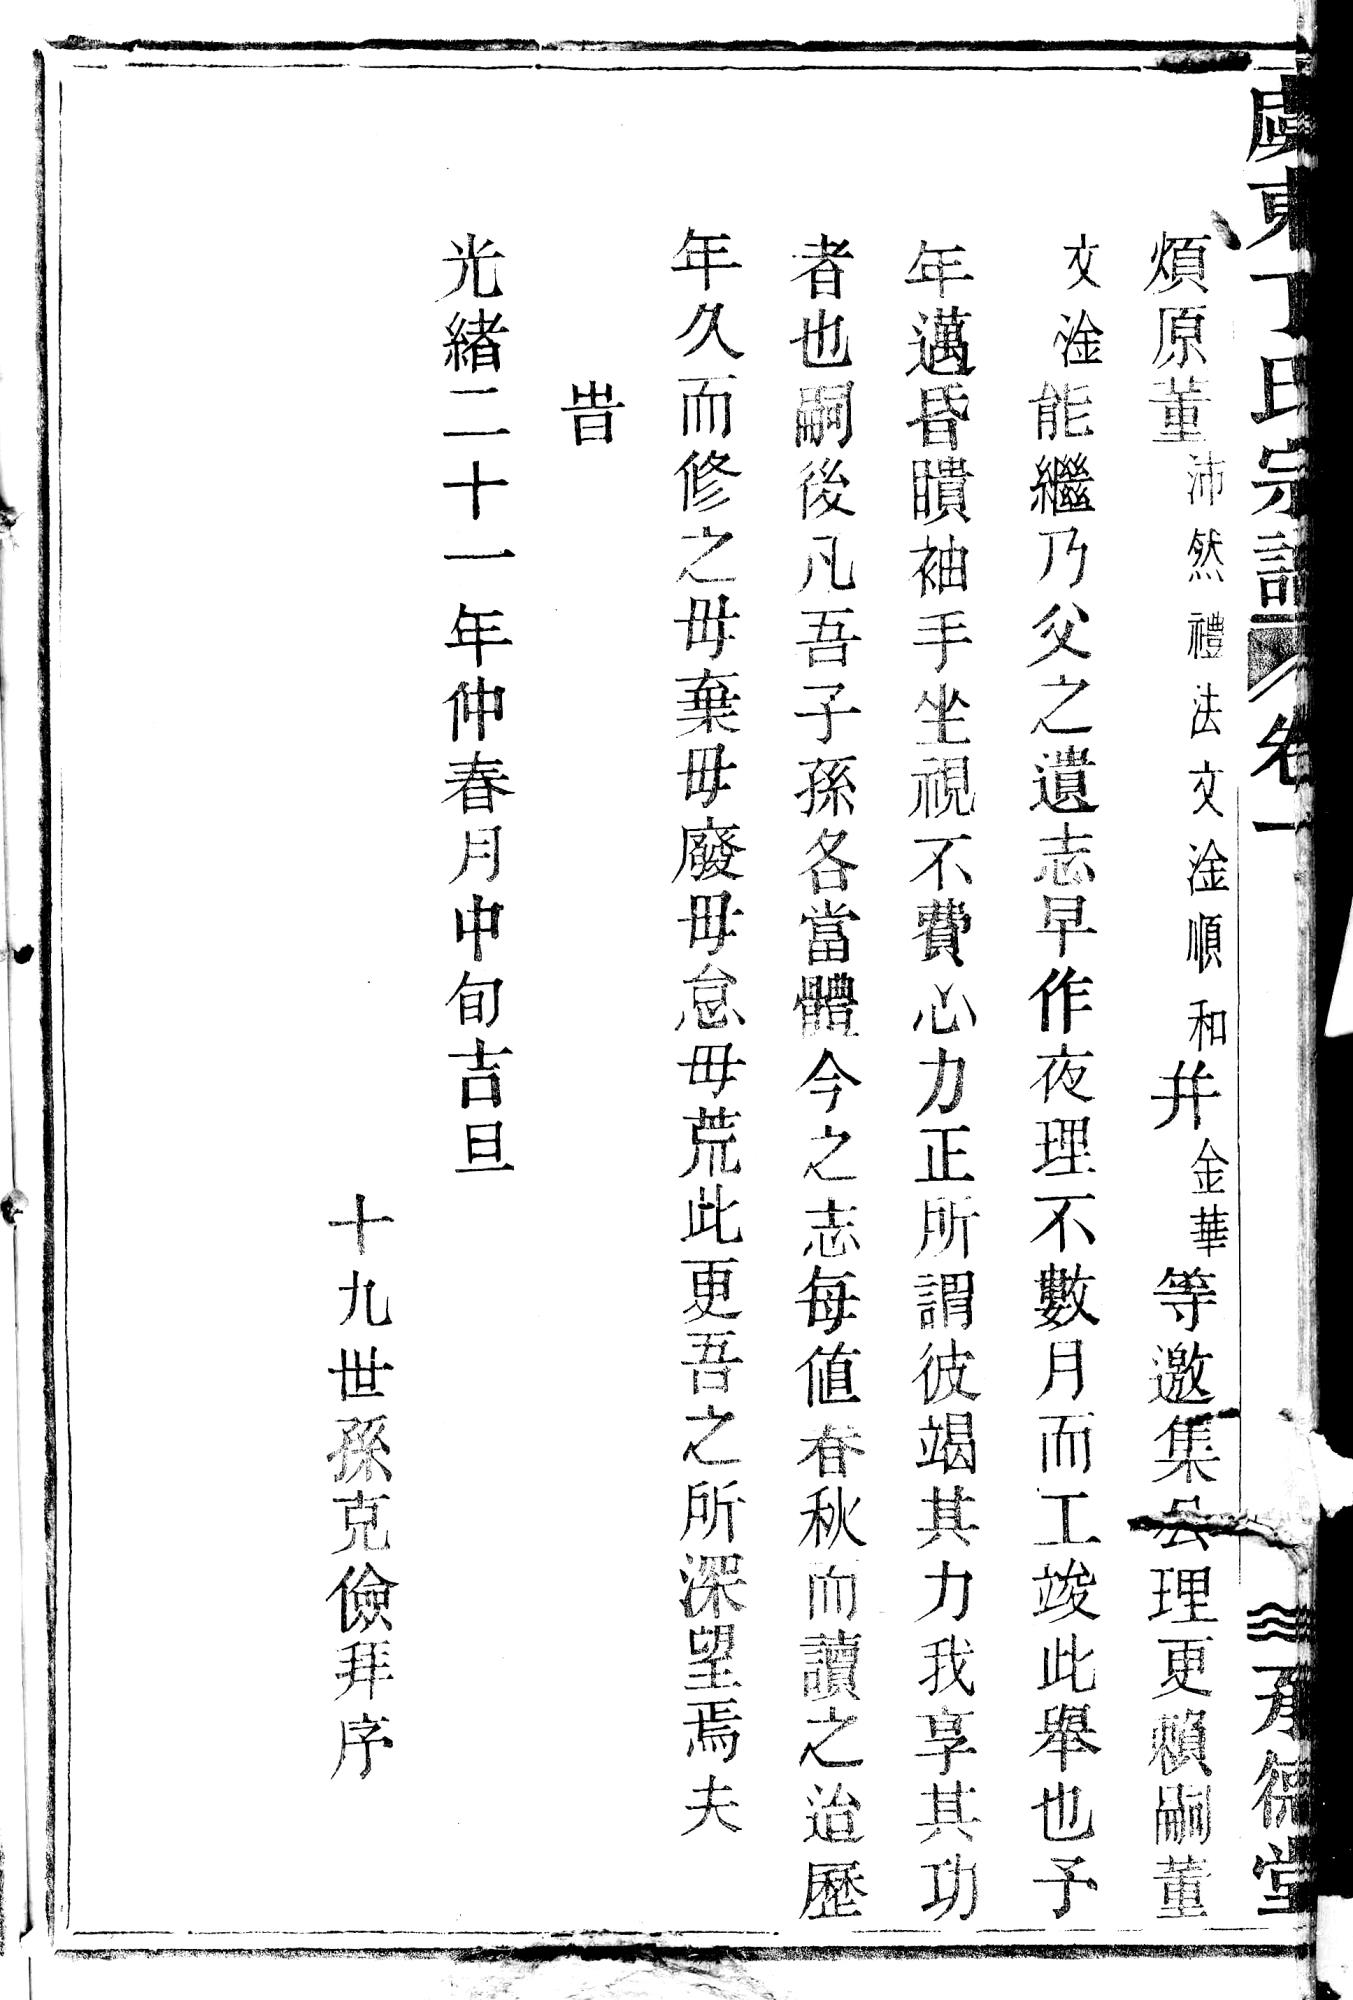 虞東丁氏宗譜 卷一 承德堂
煩原董沛然禮法文淦順和幷金華等邀集公理更賴嗣董
文淦能繼乃父之遺志早作夜理不數月而工竣此舉也予
年邁昏瞶袖手坐視不費心力正所謂彼竭其力我享其功
者也嗣後凡吾子孫各當體今之志每值春秋而讀之迨歷
年久而修之毋棄毋廢毋怠毋荒此更吾之所深望焉夫
旹
光緒二十一年仲春月中旬吉旦
十九世孫克儉拜序